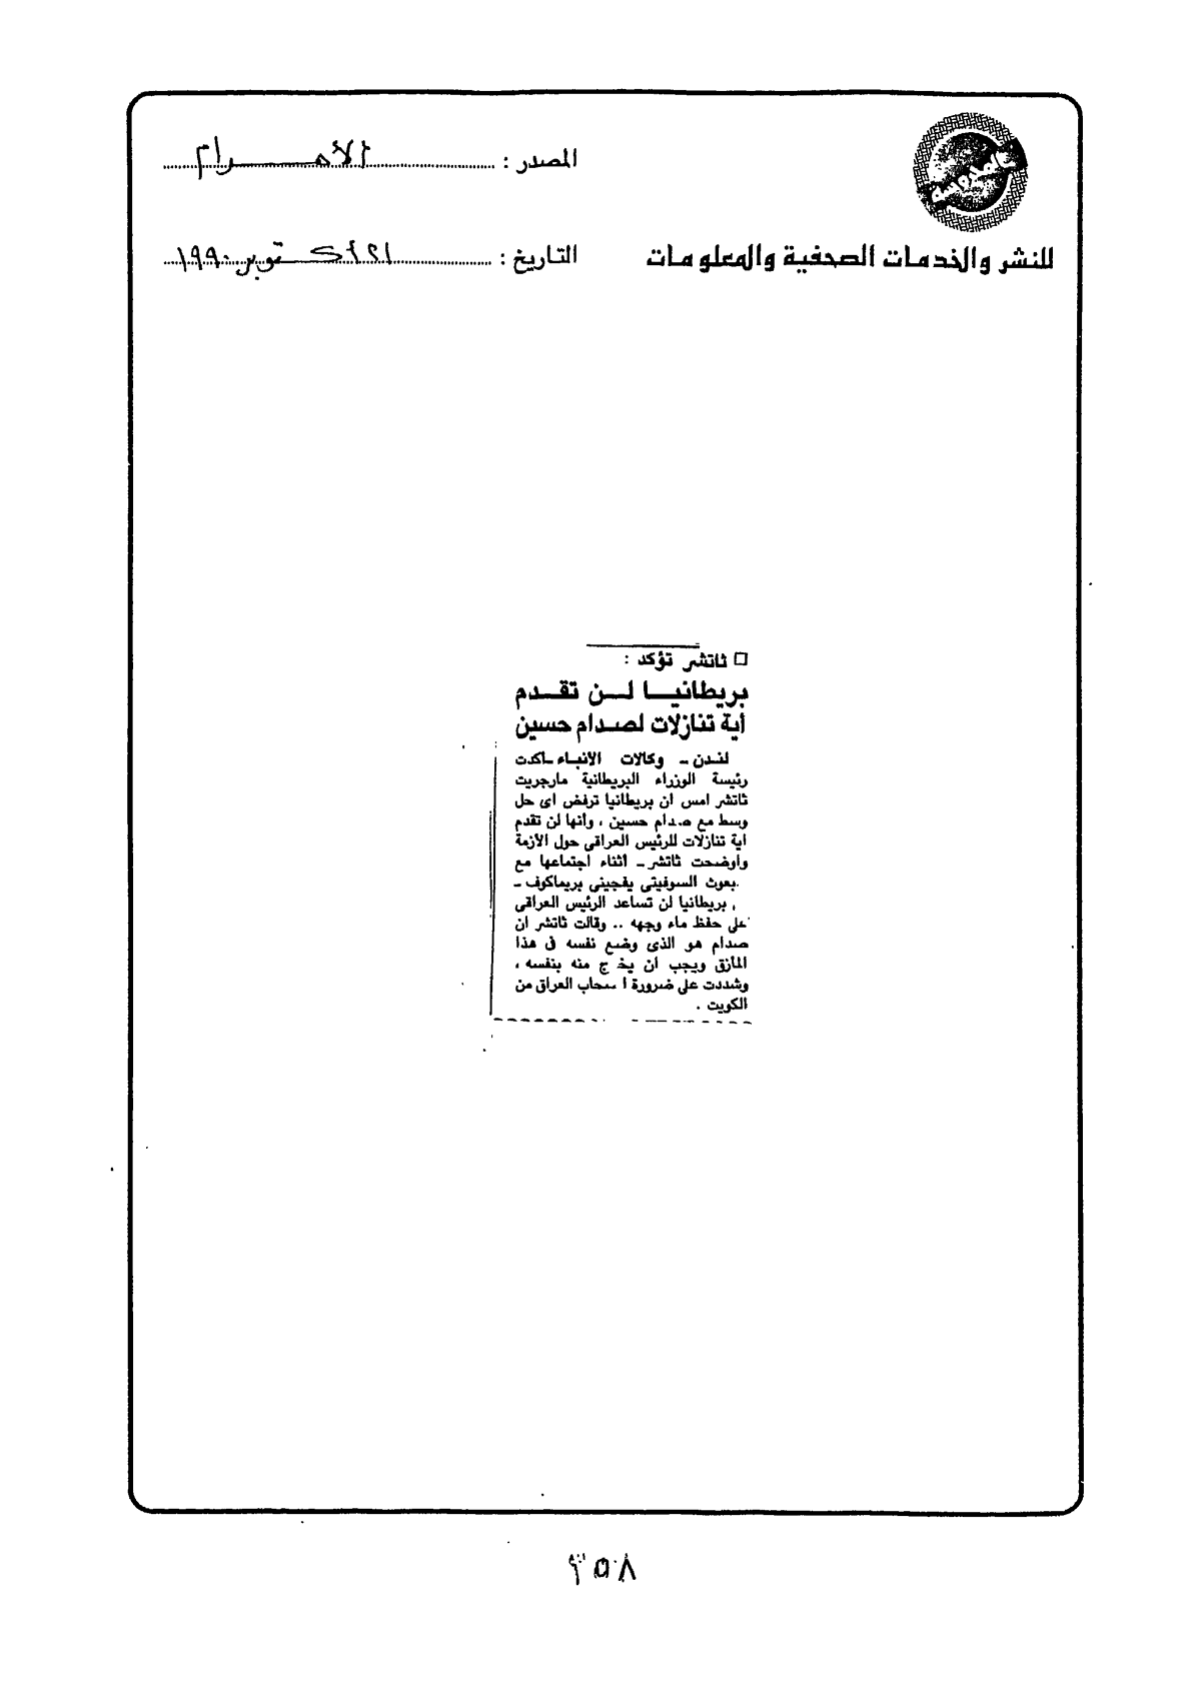 المصدر : الأهرام
للنشر والخدمات الصحفية والمعلومات
التاريخ : ٢١ أكتوبر ١٩٩٠
□ ثاتشر تؤكد :
بريطانيا لن تقدم
أية تنازلات لصدام حسين
لندن - وكالات الأنباء - أكدت
رئيسة الوزراء البريطانية مارجريت
ثاتشر امس ان بريطانيا ترفض اى حل
وسط مع صدام حسين ، وأنها لن تقدم
اية تنازلات للرئيس العراقى حول الأزمة
وأوضحت ثاتشر - اثناء اجتماعها مع
بعوث السوفيتى يفجينى بريماكوف -
بريطانيا لن تساعد الرئيس العراقى
على حفظ ماء وجهه .. وقالت ثاتشر ان
صدام هو الذى وضع نفسه فى هذا
المأزق ويجب ان يخ ج منه بنفسه ،
وشددت على ضرورة ا سحاب العراق من
الكويت .
٣٥٨